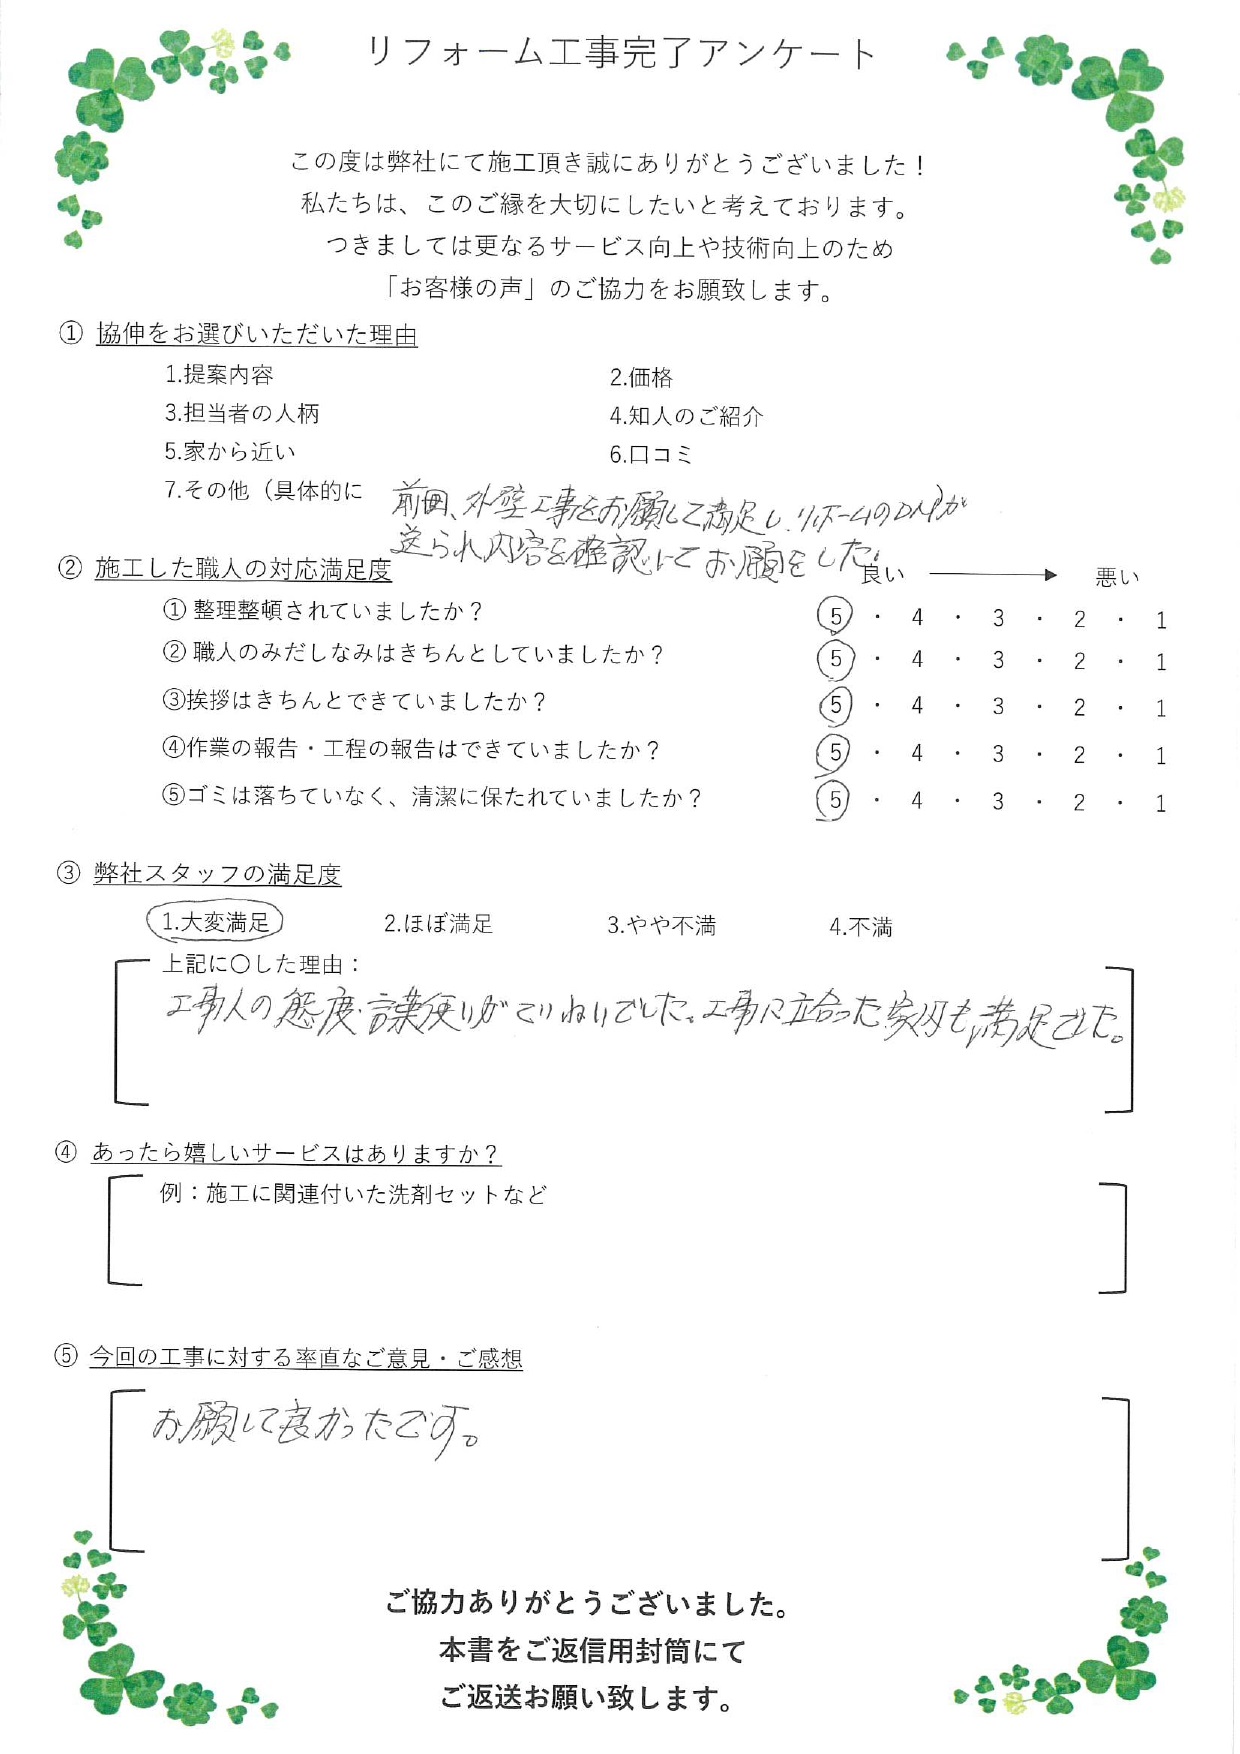 リフォーム工事完了アンケート
この度は弊社にて施工頂き誠にありがとうございました！
私たちは、このご縁を大切にしたいと考えております。
つきましては更なるサービス向上や技術向上のため
「お客様の声」のご協力をお願致します。
① 協伸をお選びいただいた理由
1.提案内容 2.価格
3.担当者の人柄 4.知人のご紹介
5.家から近い 6.口コミ
7.その他（具体的に 前回、外壁工事をお願して満足し、リホームのDMが）
送られ内容を確認してお願をした。
② 施工した職人の対応満足度 良い → 悪い
① 整理整頓されていましたか？ 5 ・ 4 ・ 3 ・ 2 ・ 1
② 職人のみだしなみはきちんとしていましたか？ 5 ・ 4 ・ 3 ・ 2 ・ 1
③挨拶はきちんとできていましたか？ 5 ・ 4 ・ 3 ・ 2 ・ 1
④作業の報告・工程の報告はできていましたか？ 5 ・ 4 ・ 3 ・ 2 ・ 1
⑤ゴミは落ちていなく、清潔に保たれていましたか？ 5 ・ 4 ・ 3 ・ 2 ・ 1
③ 弊社スタッフの満足度
1.大変満足 2.ほぼ満足 3.やや不満 4.不満
上記に〇した理由：
工事人の態度・言葉使いがていねいでした。工事に立合った家内も満足でした。
④ あったら嬉しいサービスはありますか？
例：施工に関連付いた洗剤セットなど
⑤ 今回の工事に対する率直なご意見・ご感想
お願して良かったです。
ご協力ありがとうございました。
本書をご返信用封筒にて
ご返送お願い致します。